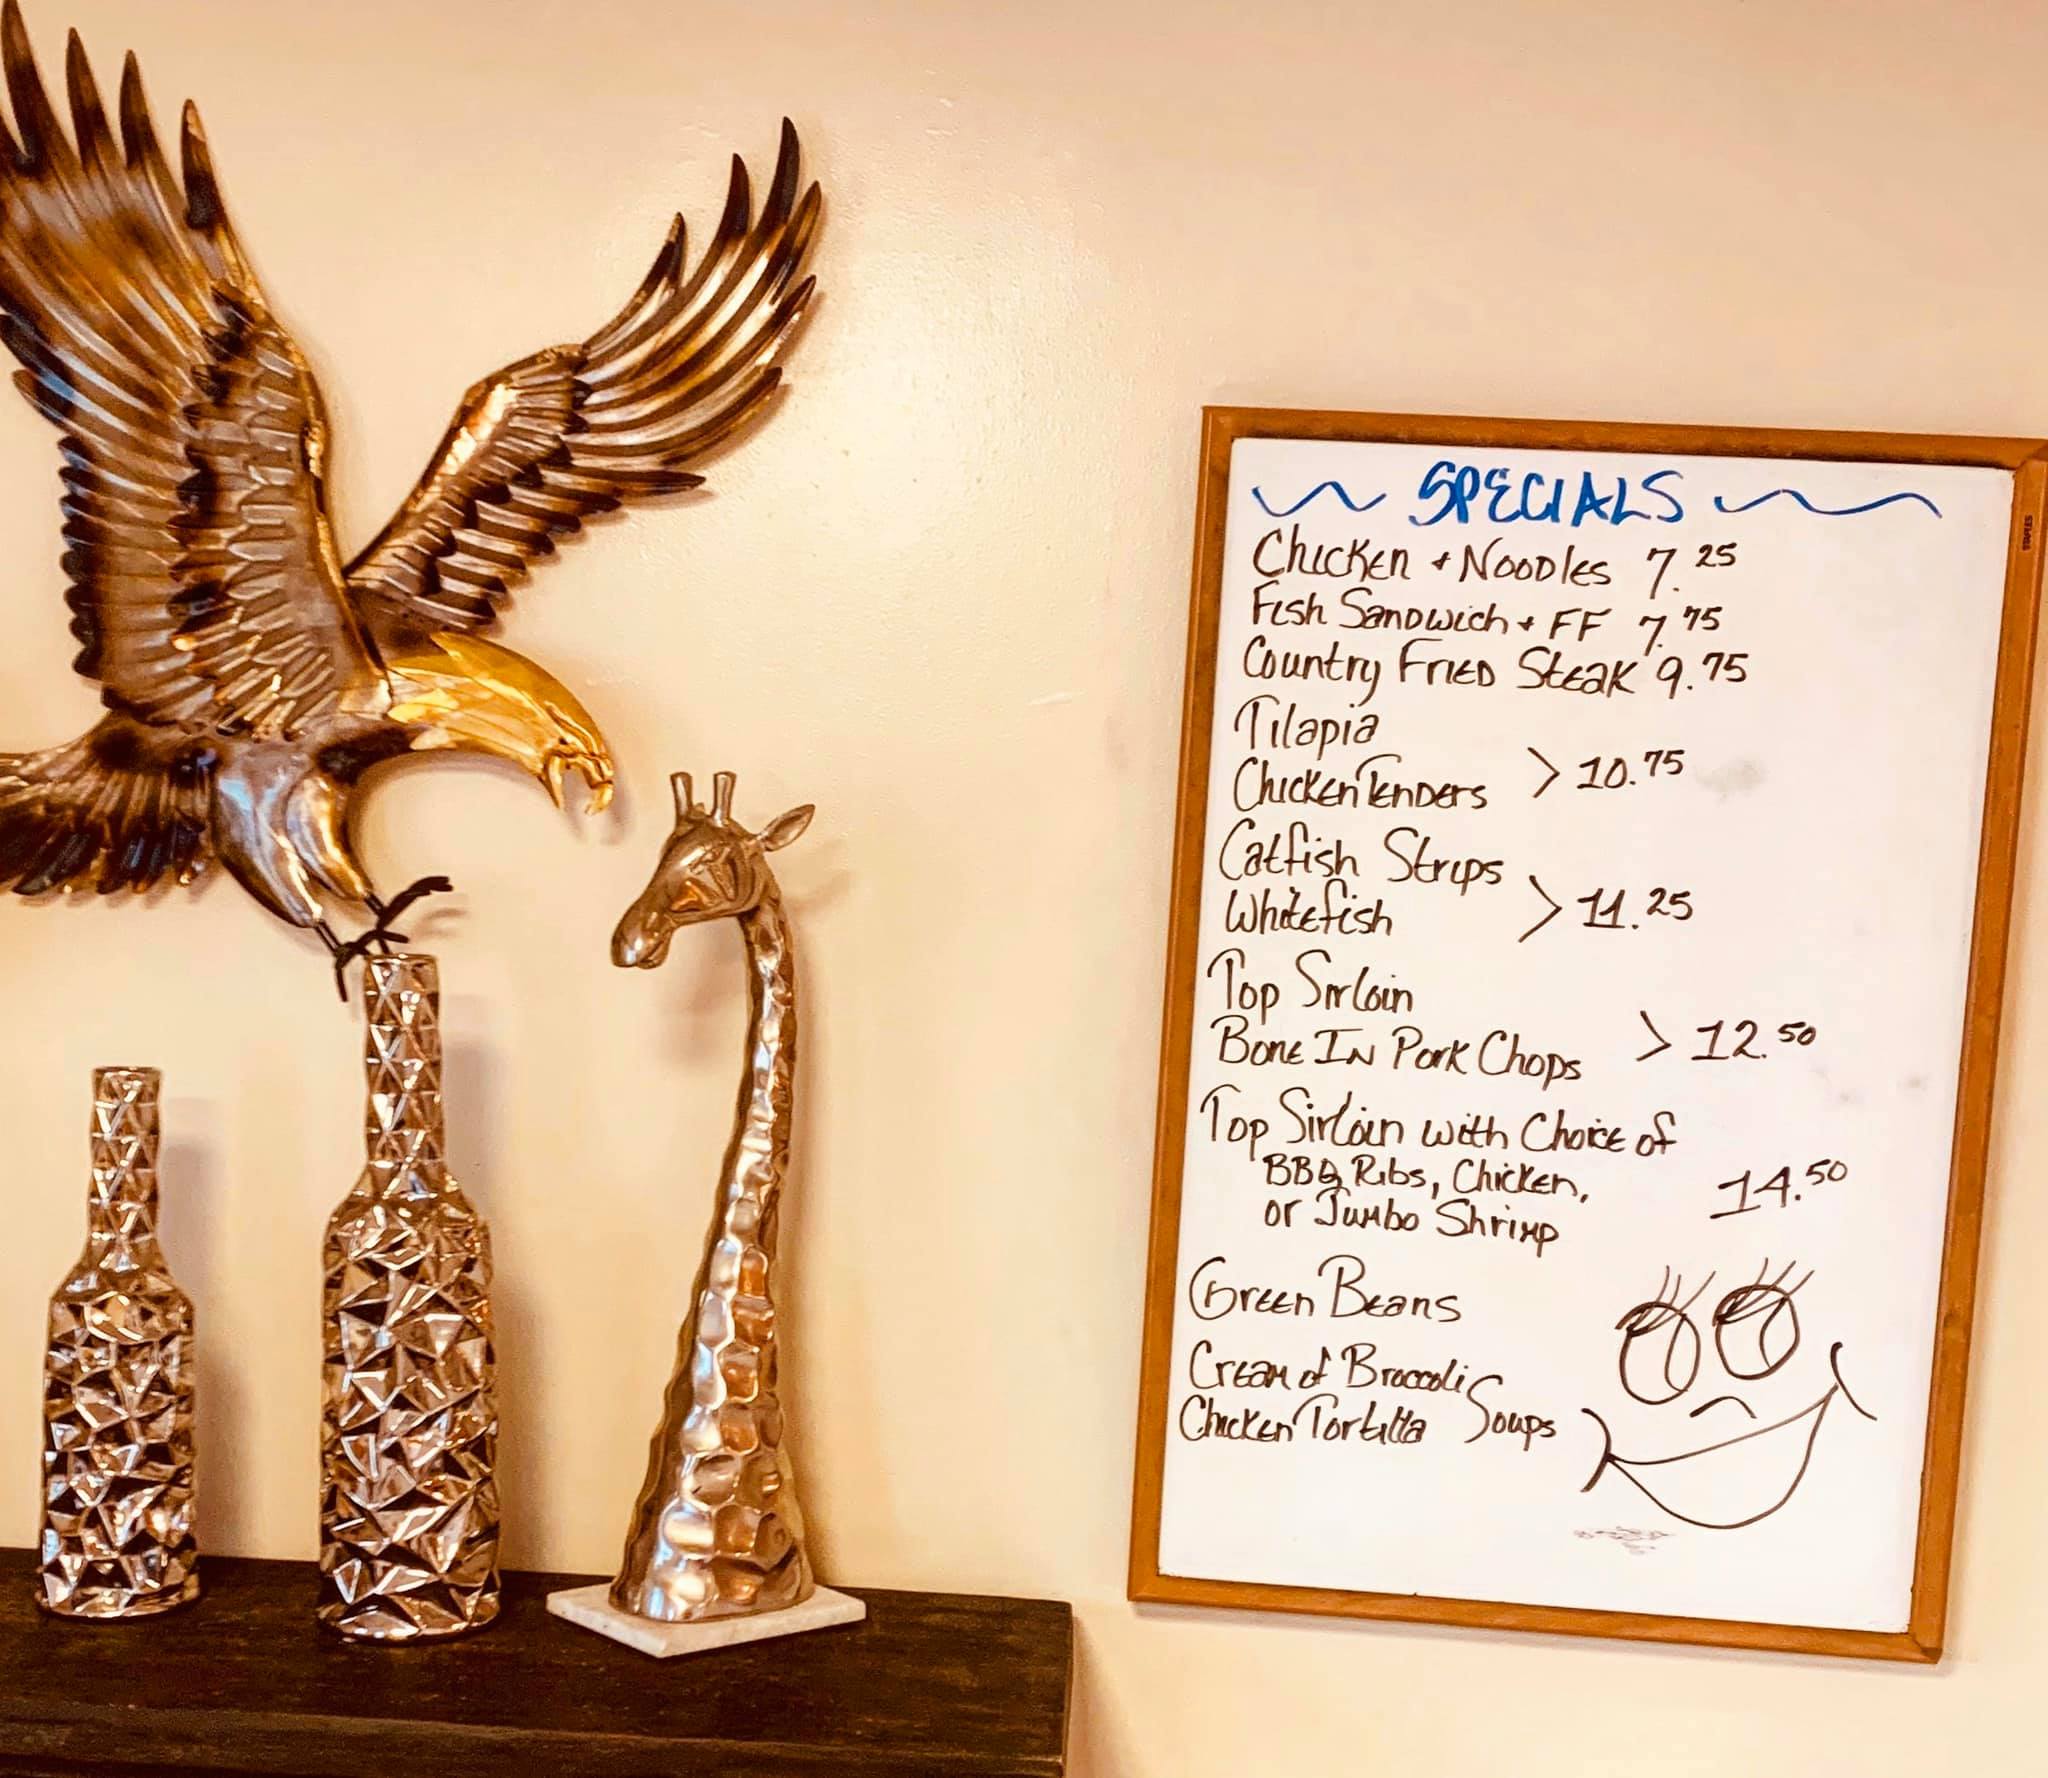 SPECIALS
Chicken + Noodles 7.25
Fish Sandwich + FF 7.75
Country Fried Steak 9.75
Tilapia
Chicken Tenders > 10.75
Catfish Strips
Whitefish > 11.25
Top Sirloin
Bone In Pork Chops > 12.50
Top Sirloin with Choice of
BBQ Ribs, Chicken,
or Jumbo Shrimp 14.50
Green Beans
Cream of Broccoli
Chicken Tortilla Soups
STAPLES